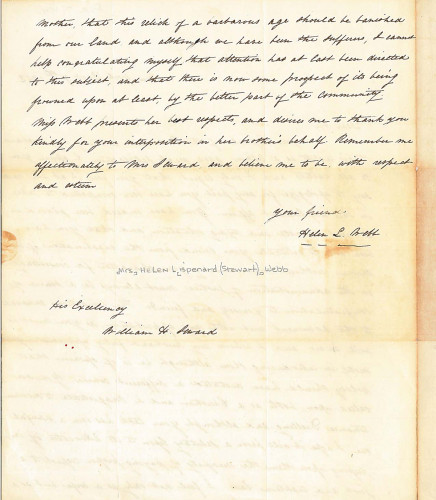 Mother, that this relick of a barbarous age should be banished
from our land and although we have been the sufferers, I cannot
help congratulating myself that attention has at last been directed
to this subject, and that there is now some prospect of its being
frowned upon at least, by the better part of the Community
Miss Webb presents her best respects, and desires me to thank you
kindly for your interposition in her brother's behalf. Remember me
affectionately to Mrs Seward and believe me to be with respect
and esteem
your friend.
Helen L. Webb
Mrs. HELEN L. ispenard (Stewart) Webb
His Excellency
William H. Seward